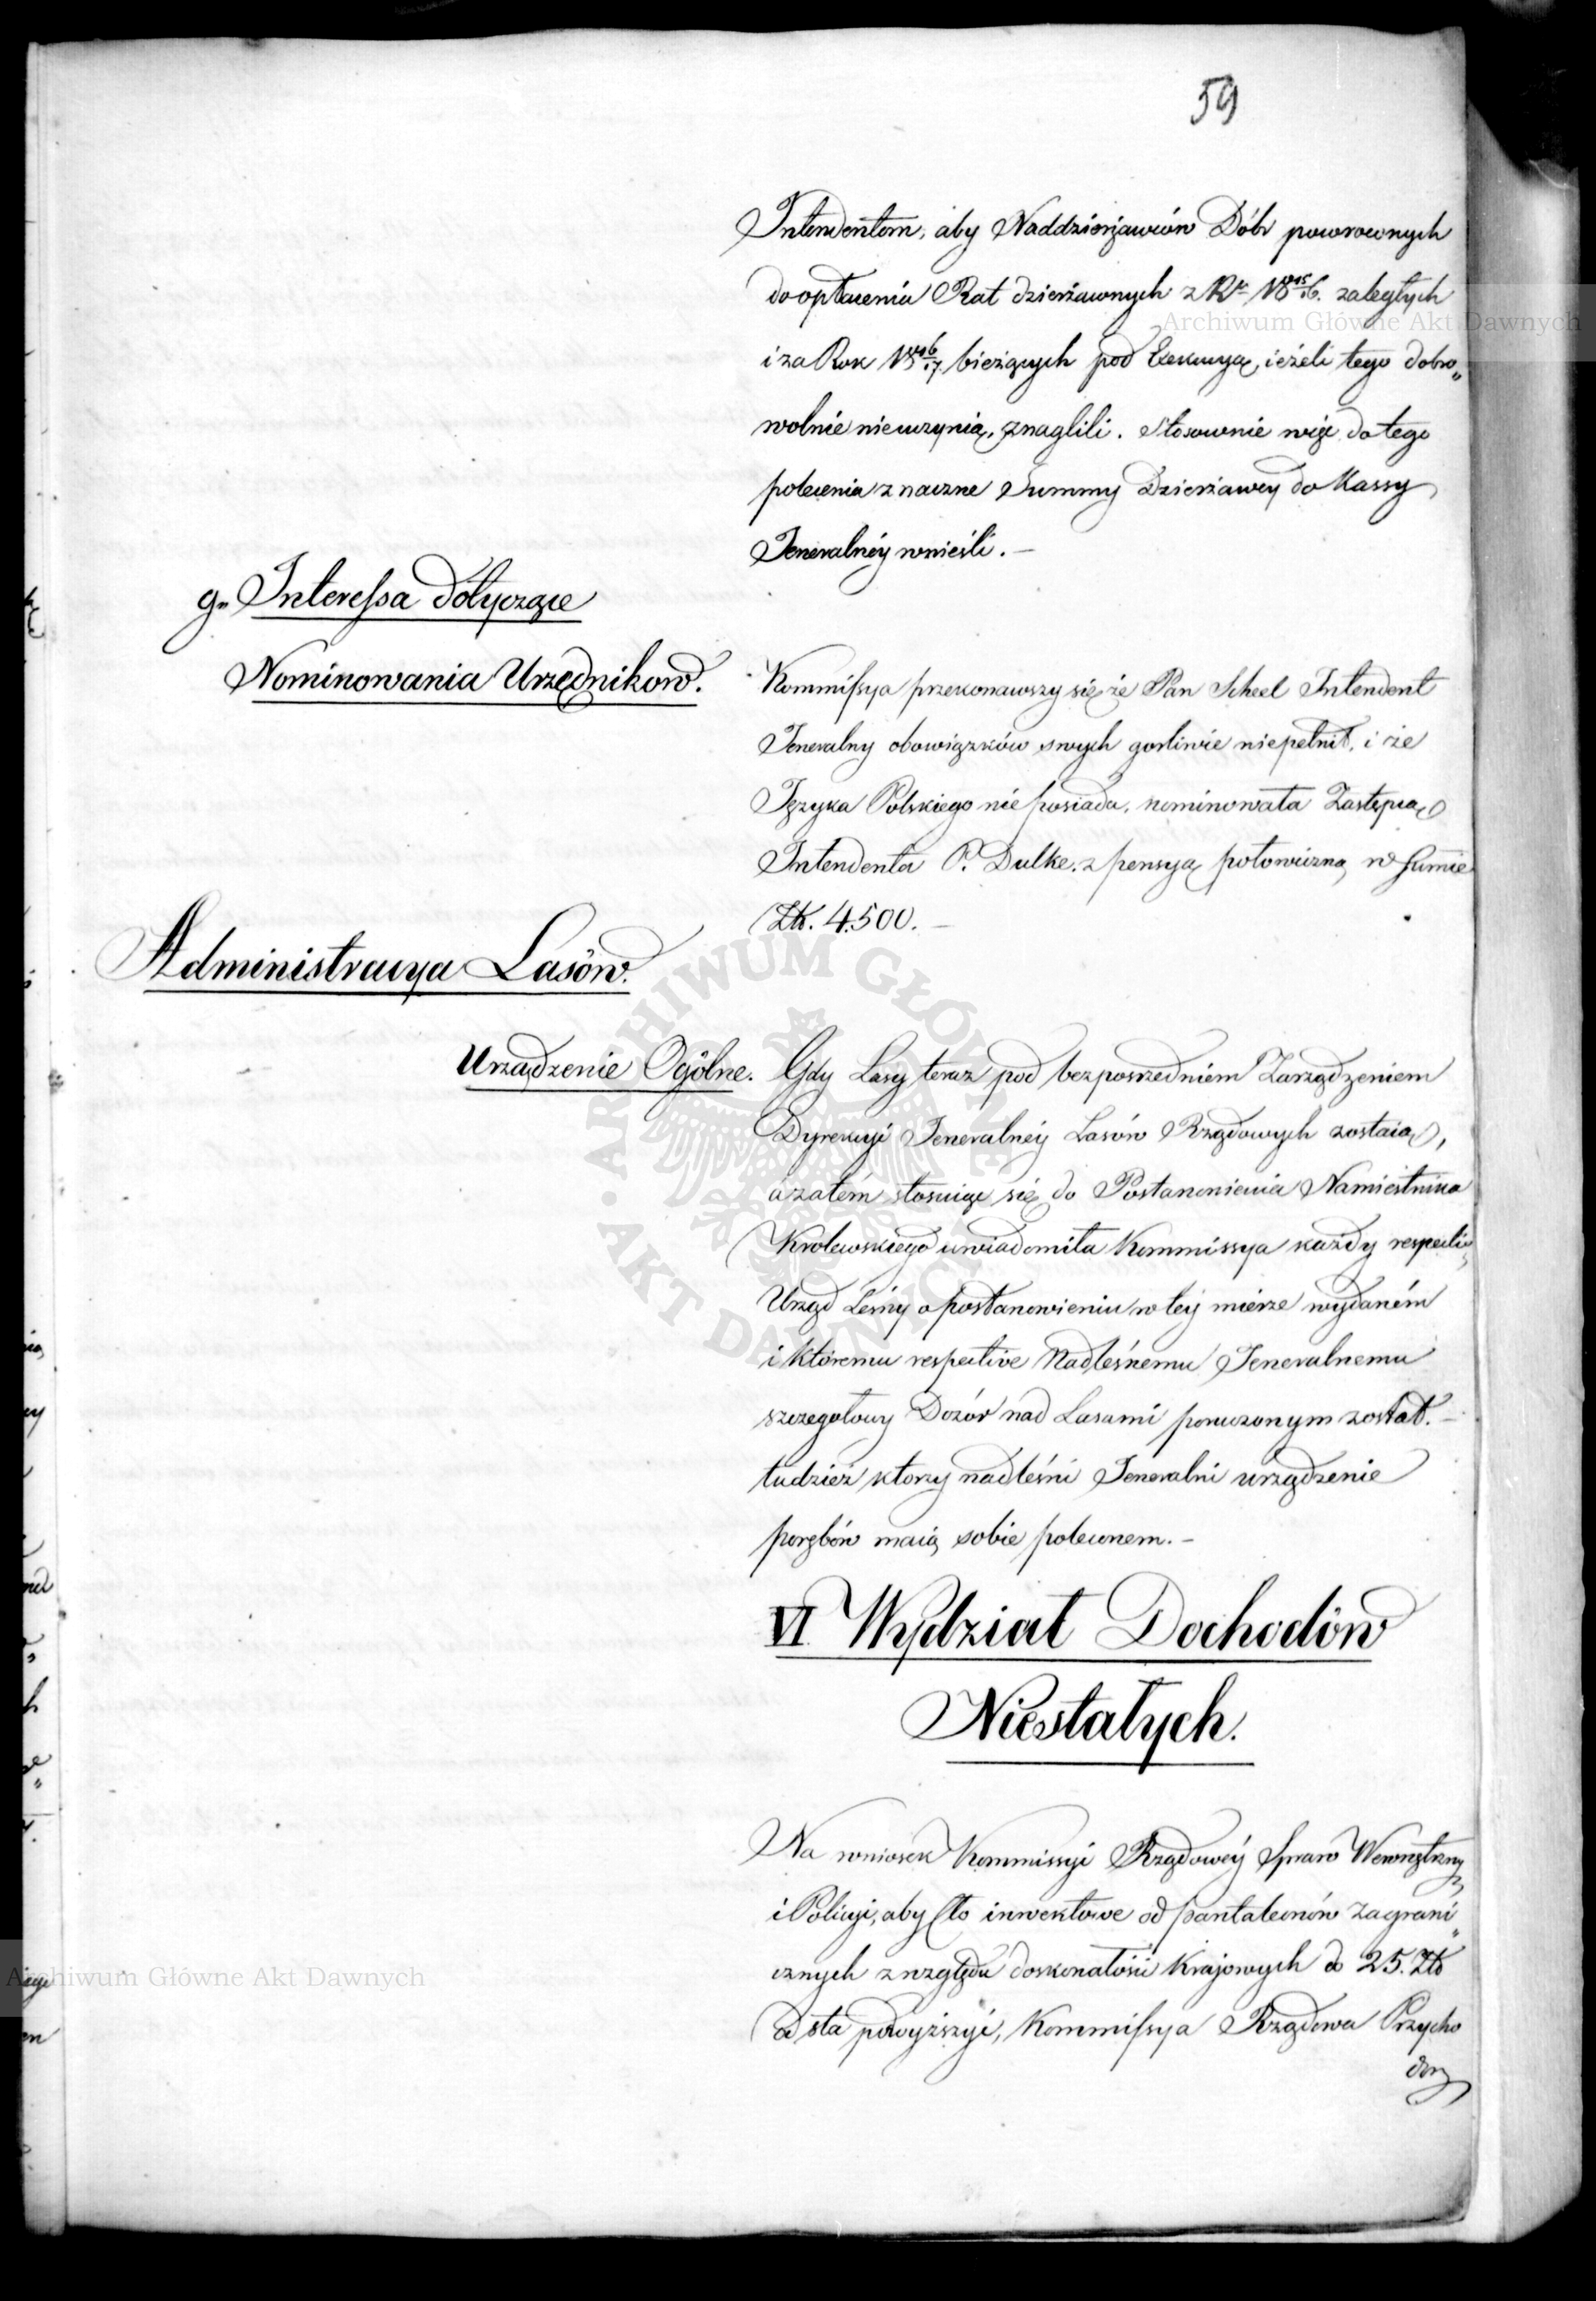 59
Intendentom, aby Naddzierżawców Dóbr powroconych
do opłacenia Rat dzierżawnych z Rk 1815/16. zaległych
i za Rok 1816/17. bieżących pod Exekucyą, ieżeli tego dobro„
wolnie nieuczynią, znaglili. Stosownie więc do tego
polecenia znaczne Summy Dzierżawcy do Kassy
Jeneralnéy wnieśli. —
g„ Interessa dotyczące
Nominowania Urzędnikow.
Kommissya przekonawszy się że Pan Scheel Intendent
Jeneralny obowiązków swych gorliwie niepełnił, i że
Języka Polskiego nie posiada, nominowała Zastępcą
Intendenta P. Dulke. z pensyą połowiczną w Summie
Zł. 4.500. —
Administracya Lasów.
Urządzenie Ogólne.
Gdy Lasy teraz pod bezpośredniem Zarządzeniem
Dyrekcyi Jeneralnéy Lasów Rządowych zostaią,
a zatém stosuiąc się do Postanowienia Namiestnika
Krolewskiego uwiadomiła Kommissya każdy respecti„
Urząd Leśny o postanowieniu w téy mierze wydaném
i któremu respective Nadleśnemu Jeneralnemu
szczegołowy Dozór nad Lasami poruczonym został. —
tudzież ktorzy nadleśni Jeneralni urządzenie
porębów maią sobie poleconem. —
VI Wydział Dochodów
Niestałych.
Na wniosek Kommissyi Rządowéy Spraw Wewnętrzny
i Policyi, aby Cło inwektowe od pantaleonów zagrani„
cznych z względu doskonałości Krajowych do 25. Zł
od sta powyższyć, Kommissya Rządowa Przycho
dow
Archiwum Główne Akt Dawnych
Archiwum Główne Akt Dawnych
ARCHIWUM GŁÓWNE • AKT DAWNYCH •